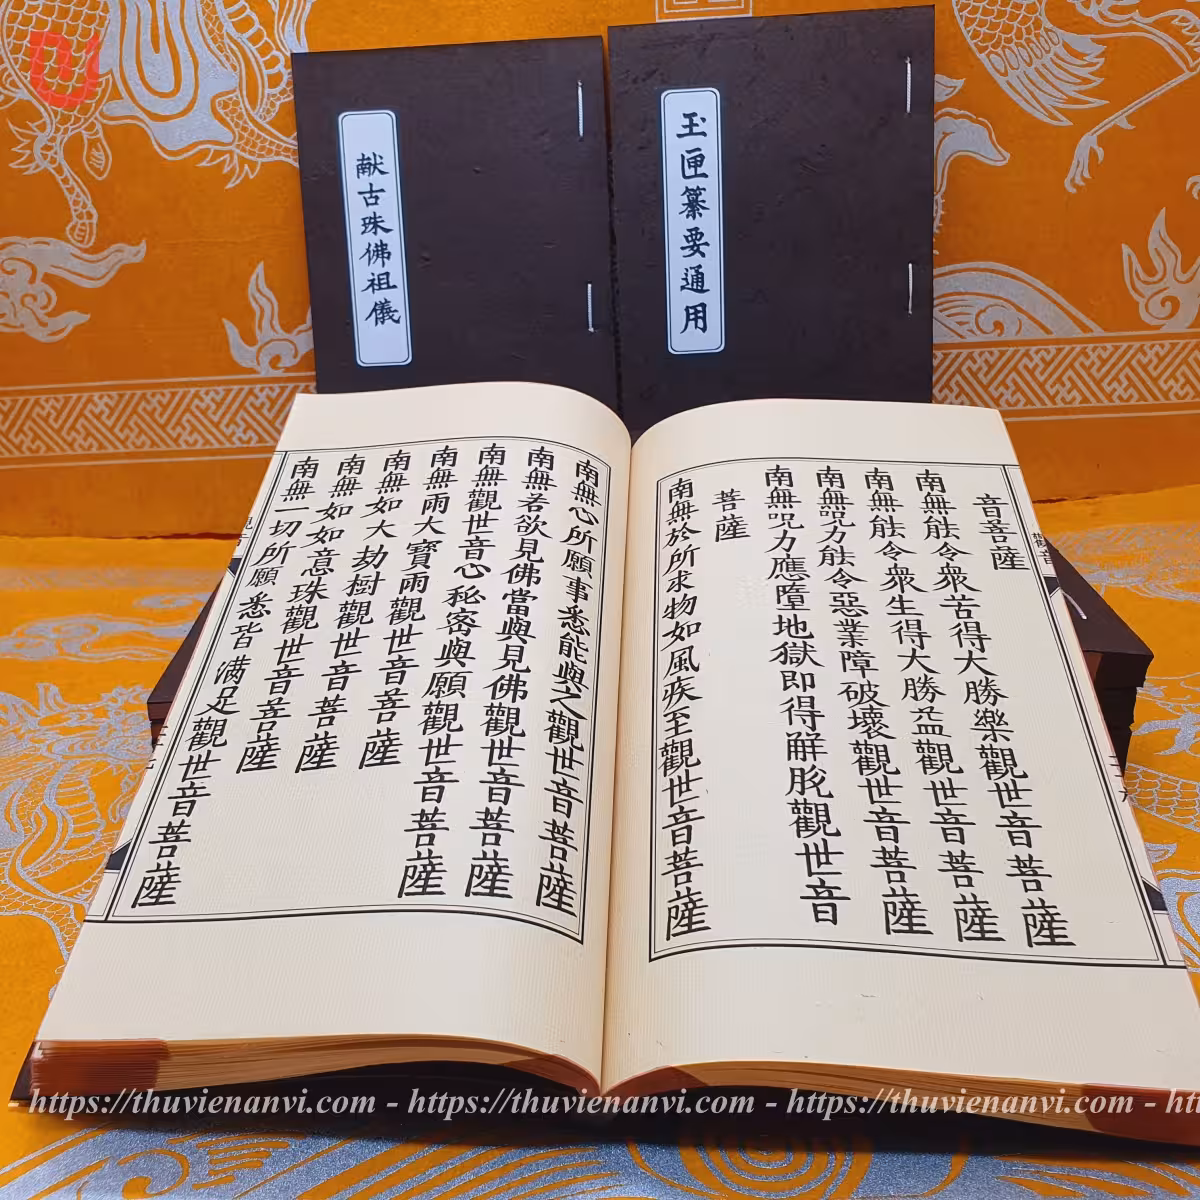 献古珠佛祖儀
玉匣纂要通用
音菩薩
南無能令衆苦得大勝樂觀世音菩薩
南無能令衆生得大勝益觀世音菩薩
南無咒力能令惡業障破壞觀世音菩薩
南無咒力應墮地獄即得解脫觀世音
菩薩
南無於所求物如風疾至觀世音菩薩
南無心所願事悉能與之觀世音菩薩
南無若欲見佛當與見佛觀世音菩薩
南無觀世音心秘密與願觀世音菩薩
南無雨大寶雨觀世音菩薩
南無如大劫樹觀世音菩薩
南無如如意珠觀世音菩薩
南無一切所願悉皆满足觀世音菩薩
- https://thuvienanvi.com - https://thuvienanvi.com - https://thuvienanvi.com -